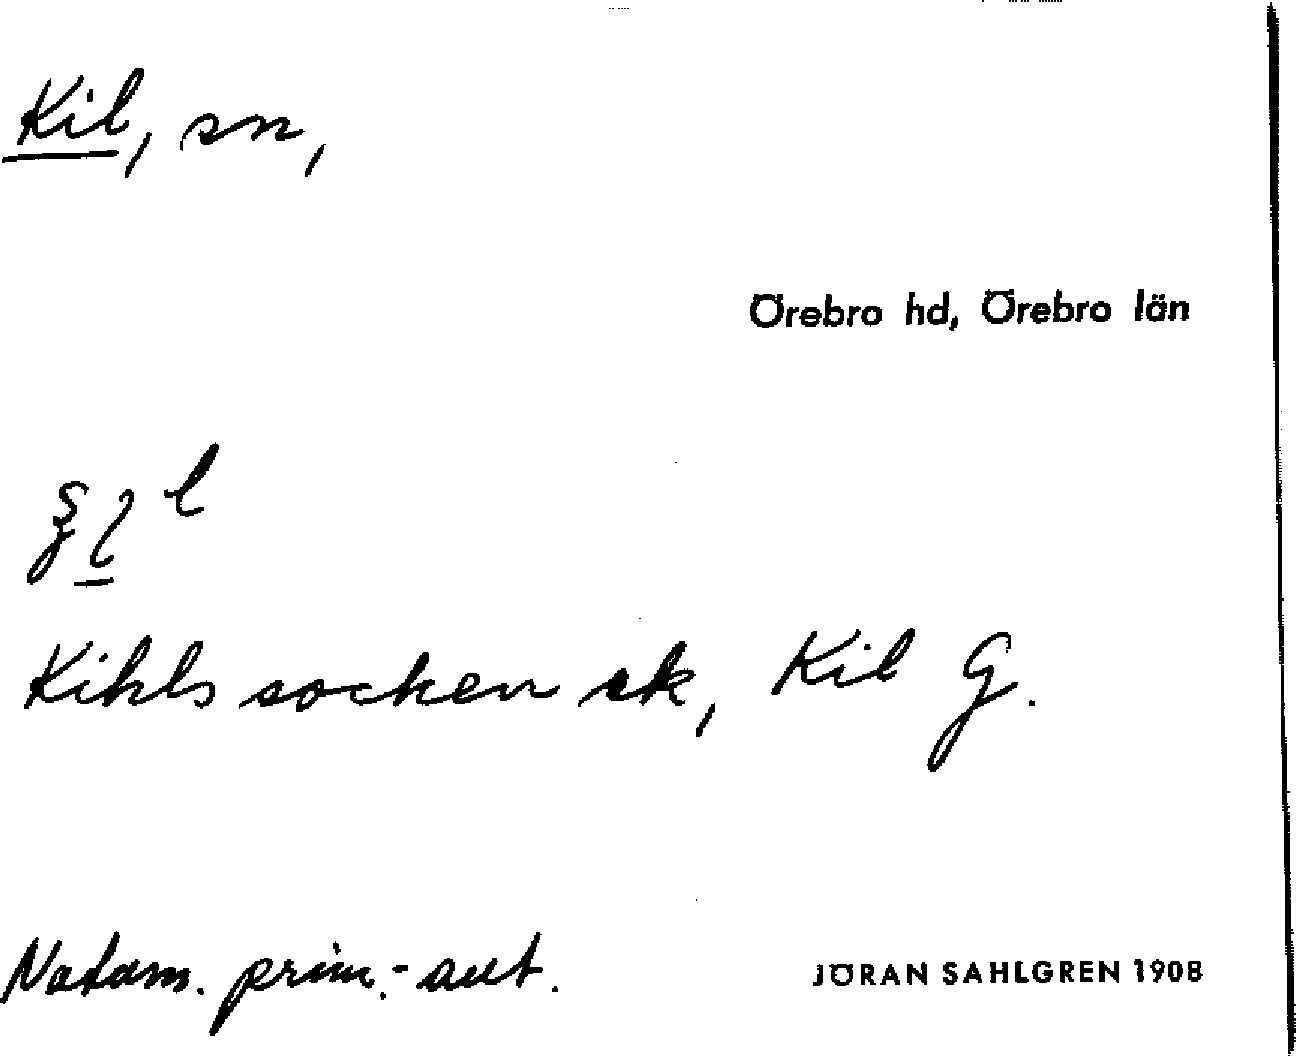 Kil, sn,
Örebro hd, Örebro län
Kihls socken sk, Kil G.
Natam. prim.-aut.
JÖRAN SAHLGREN 1908